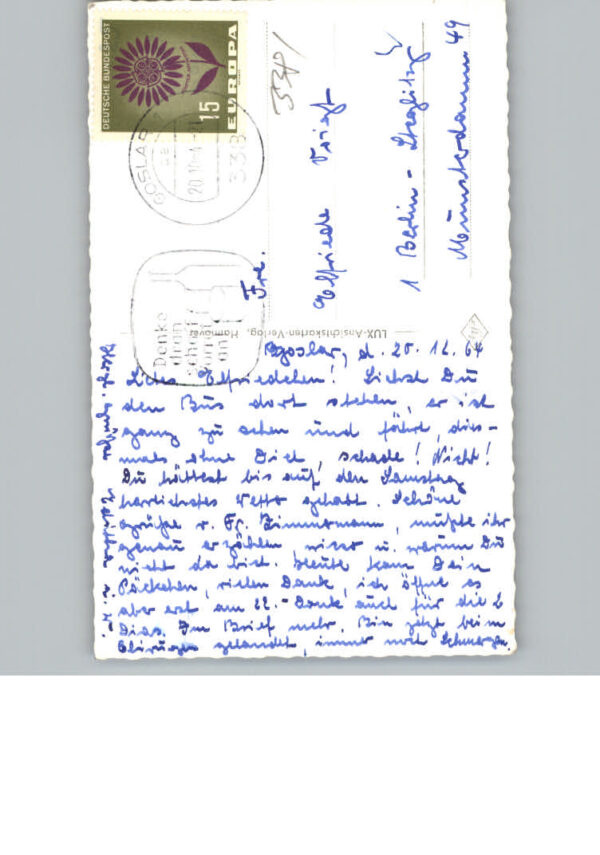 DEUTSCHE BUNDESPOST
EUROPA
15
GOSLAR
338
20.10.64-21
Denke
dran
schaff
Vorrat
an
3381
Fr.
Elfriede Voigt
1 Berlin - Steglitz
Münsterdamm 49
LUX-Ansichtskarten-Verlag, Hannover
Goslar, d. 20.10.64
Liebes Elfriedchen! Siehst Du
den Bus dort stehen, er ist
ganz zu sehen und fährt, dies-
mals ohne Dich, schade! Nicht!
Du hättest bis auf den Samstag
herrlichstes Wetter gehabt. Schöne
Grüße v. Fr. Zimmermann, mußte ihr
genau erzählen wieso u. warum Du
nicht da bist. Heute kam Dein
Päckchen, vielen Dank, ich öffne es
aber erst am 22. - Dank auch für die 2
Dias. Im Brief mehr. Bin jetzt beim
Chirurgen gelandet, immer noch Schmerzen.
Herzl. Grüße